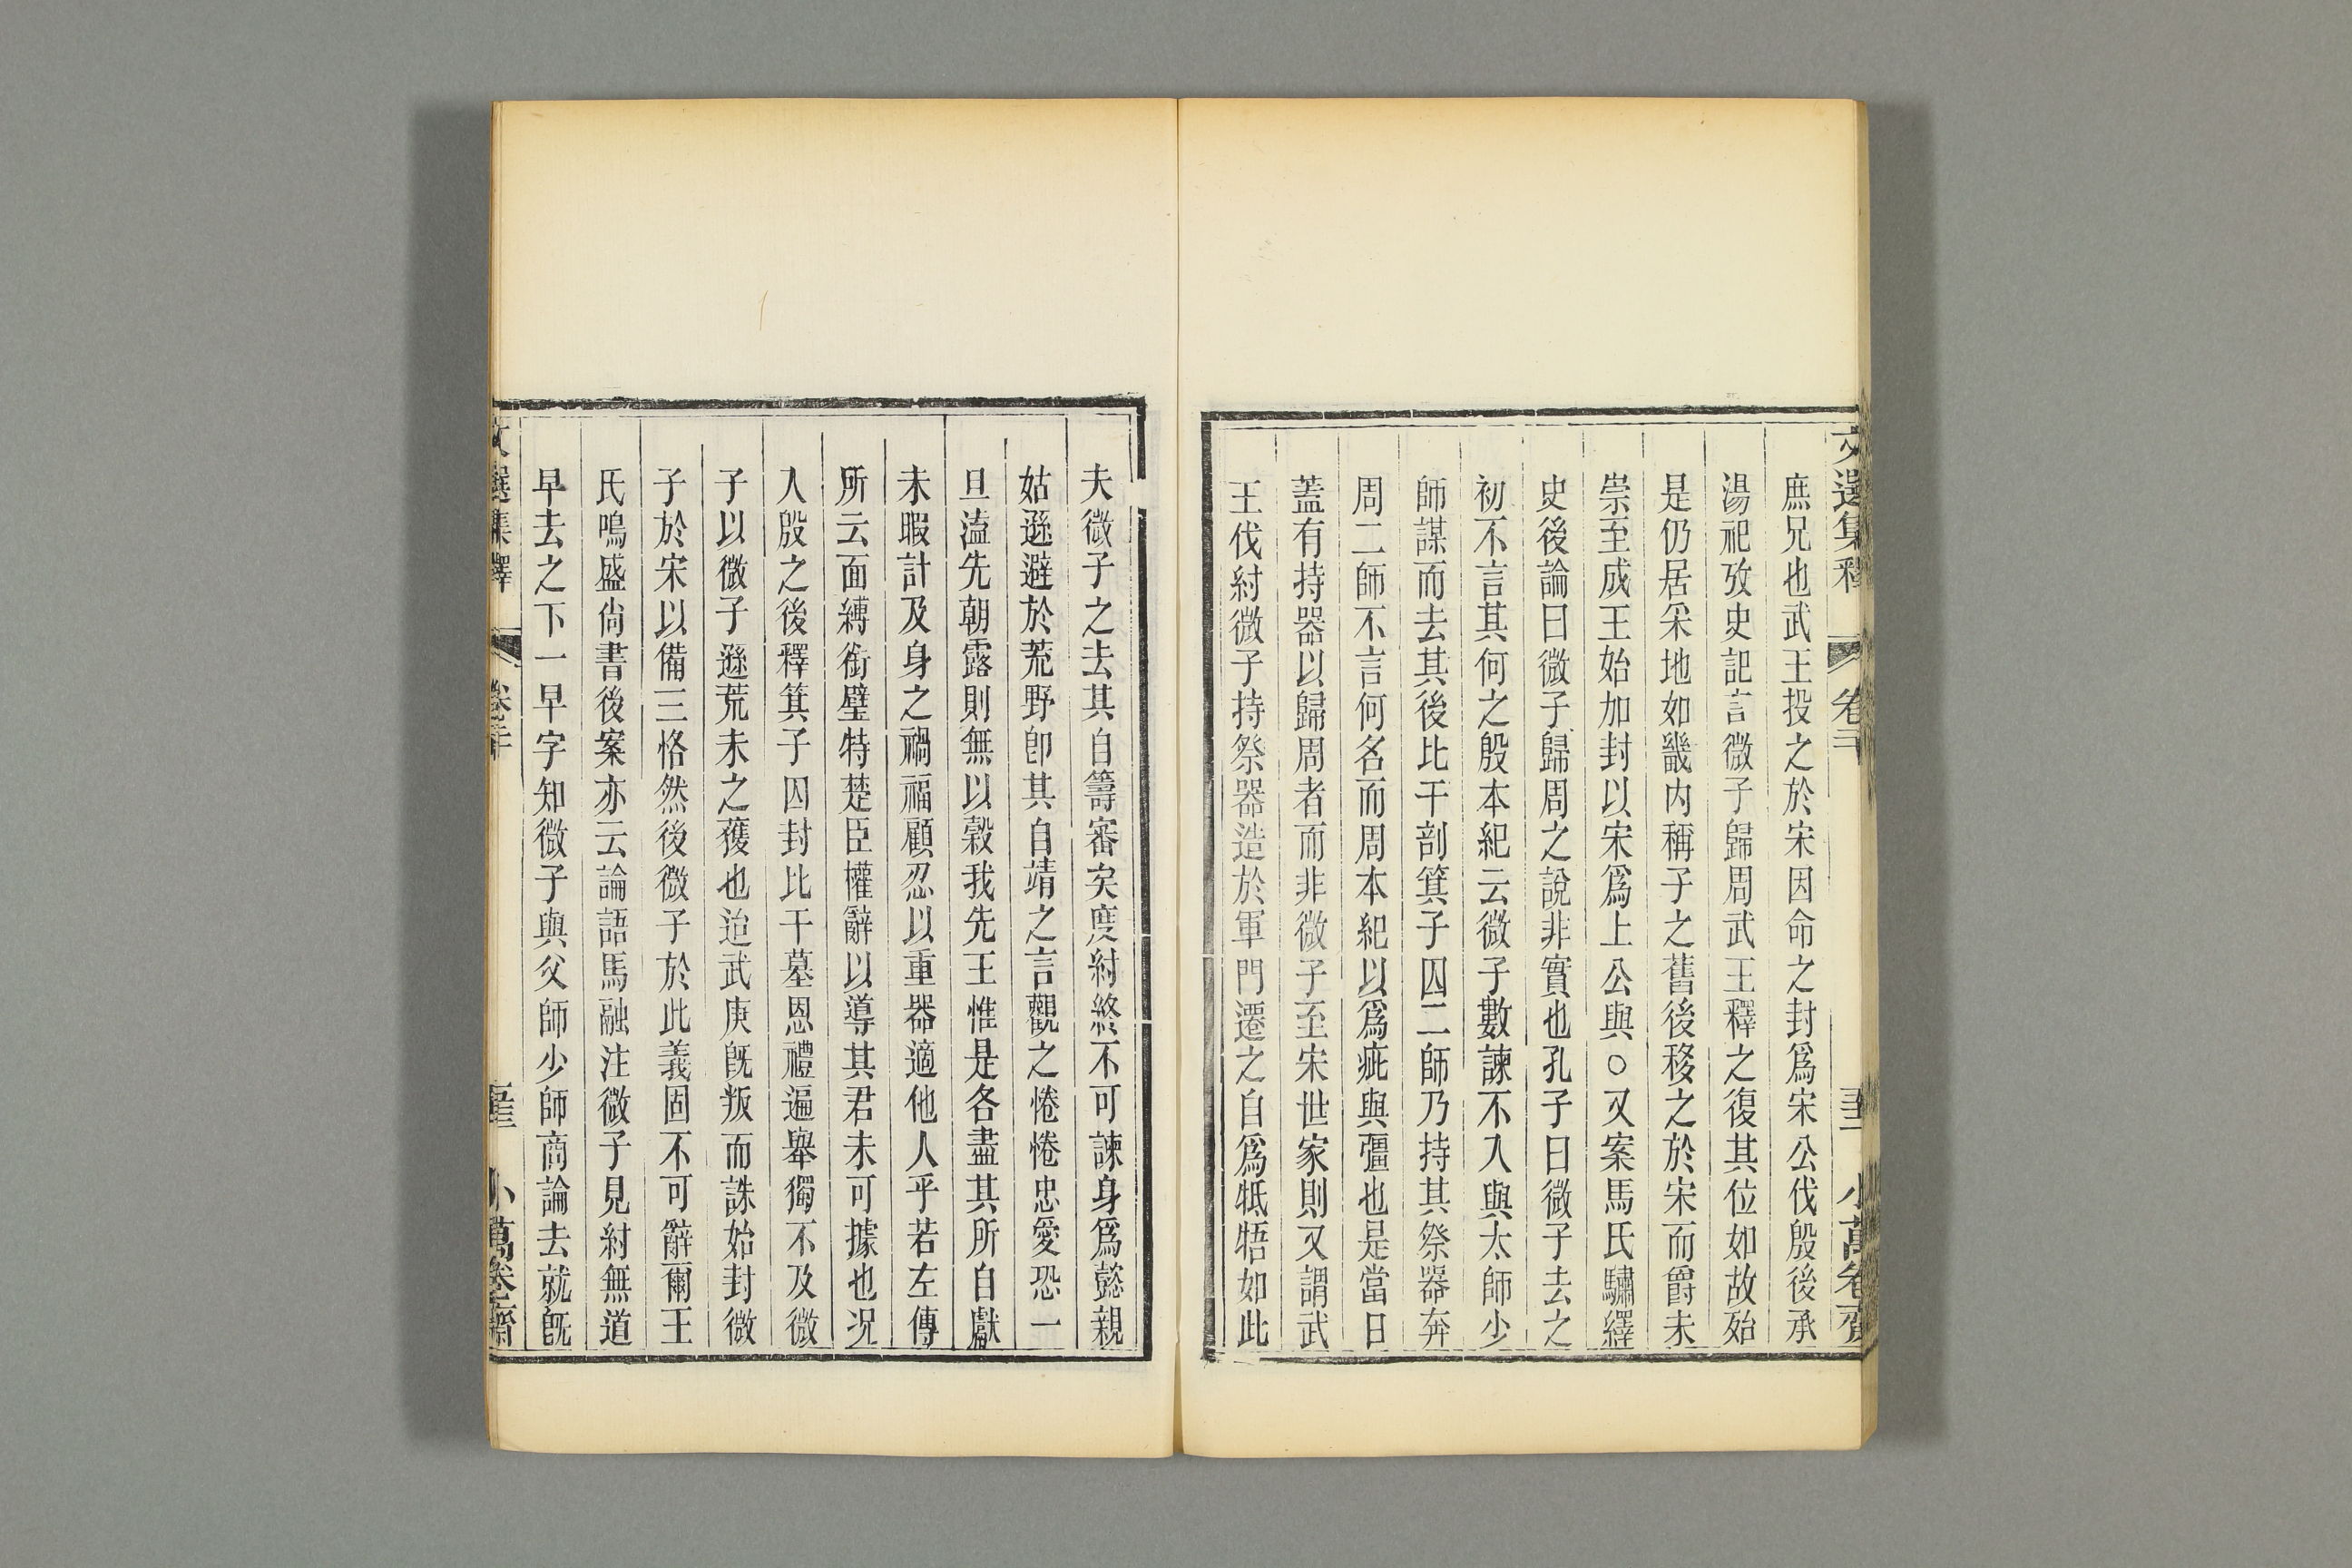 文選集釋 卷二十 小萬卷齋
庶兄也武王投之於宋因命之封爲宋公伐殷後承
湯祀攷史記言微子歸周武王釋之復其位如故殆
是仍居采地如畿內稱子之舊後移之於宋而爵未
崇至成王始加封以宋爲上公與○又案馬氏驌繹
史後論曰微子歸周之說非實也孔子曰微子去之
初不言其何之殷本紀云微子數諫不入與太師少
師謀而去其後比干剖箕子囚二師乃持其祭器奔
周二師不言何名而周本紀以爲疵與彊也是當日
蓋有持器以歸周者而非微子至宋世家則又謂武
王伐紂微子持祭器造於軍門遷之自爲牴牾如此
夫微子之去其自籌審矣度紂終不可諫身爲懿親
姑遜避於荒野卽其自靖之言觀之惓惓忠愛恐一
旦溘先朝露則無以穀我先王惟是各盡其所自獻
未暇計及身之禍福顧忍以重器適他人乎若左傳
所云面縛銜璧特楚臣懽辭以導其君未可據也況
入殷之後釋箕子囚封比干墓恩禮遍舉獨不及微
子以微子遜荒未之獲也迨武庚旣叛而誅始封微
子於宋以備三恪然後微子於此義固不可辭爾王
氏鳴盛尙書後案亦云論語馬融注微子見紂無道
早去之下一早字知微子與父師少師商論去就旣
文選集釋 卷二十 小萬卷齋